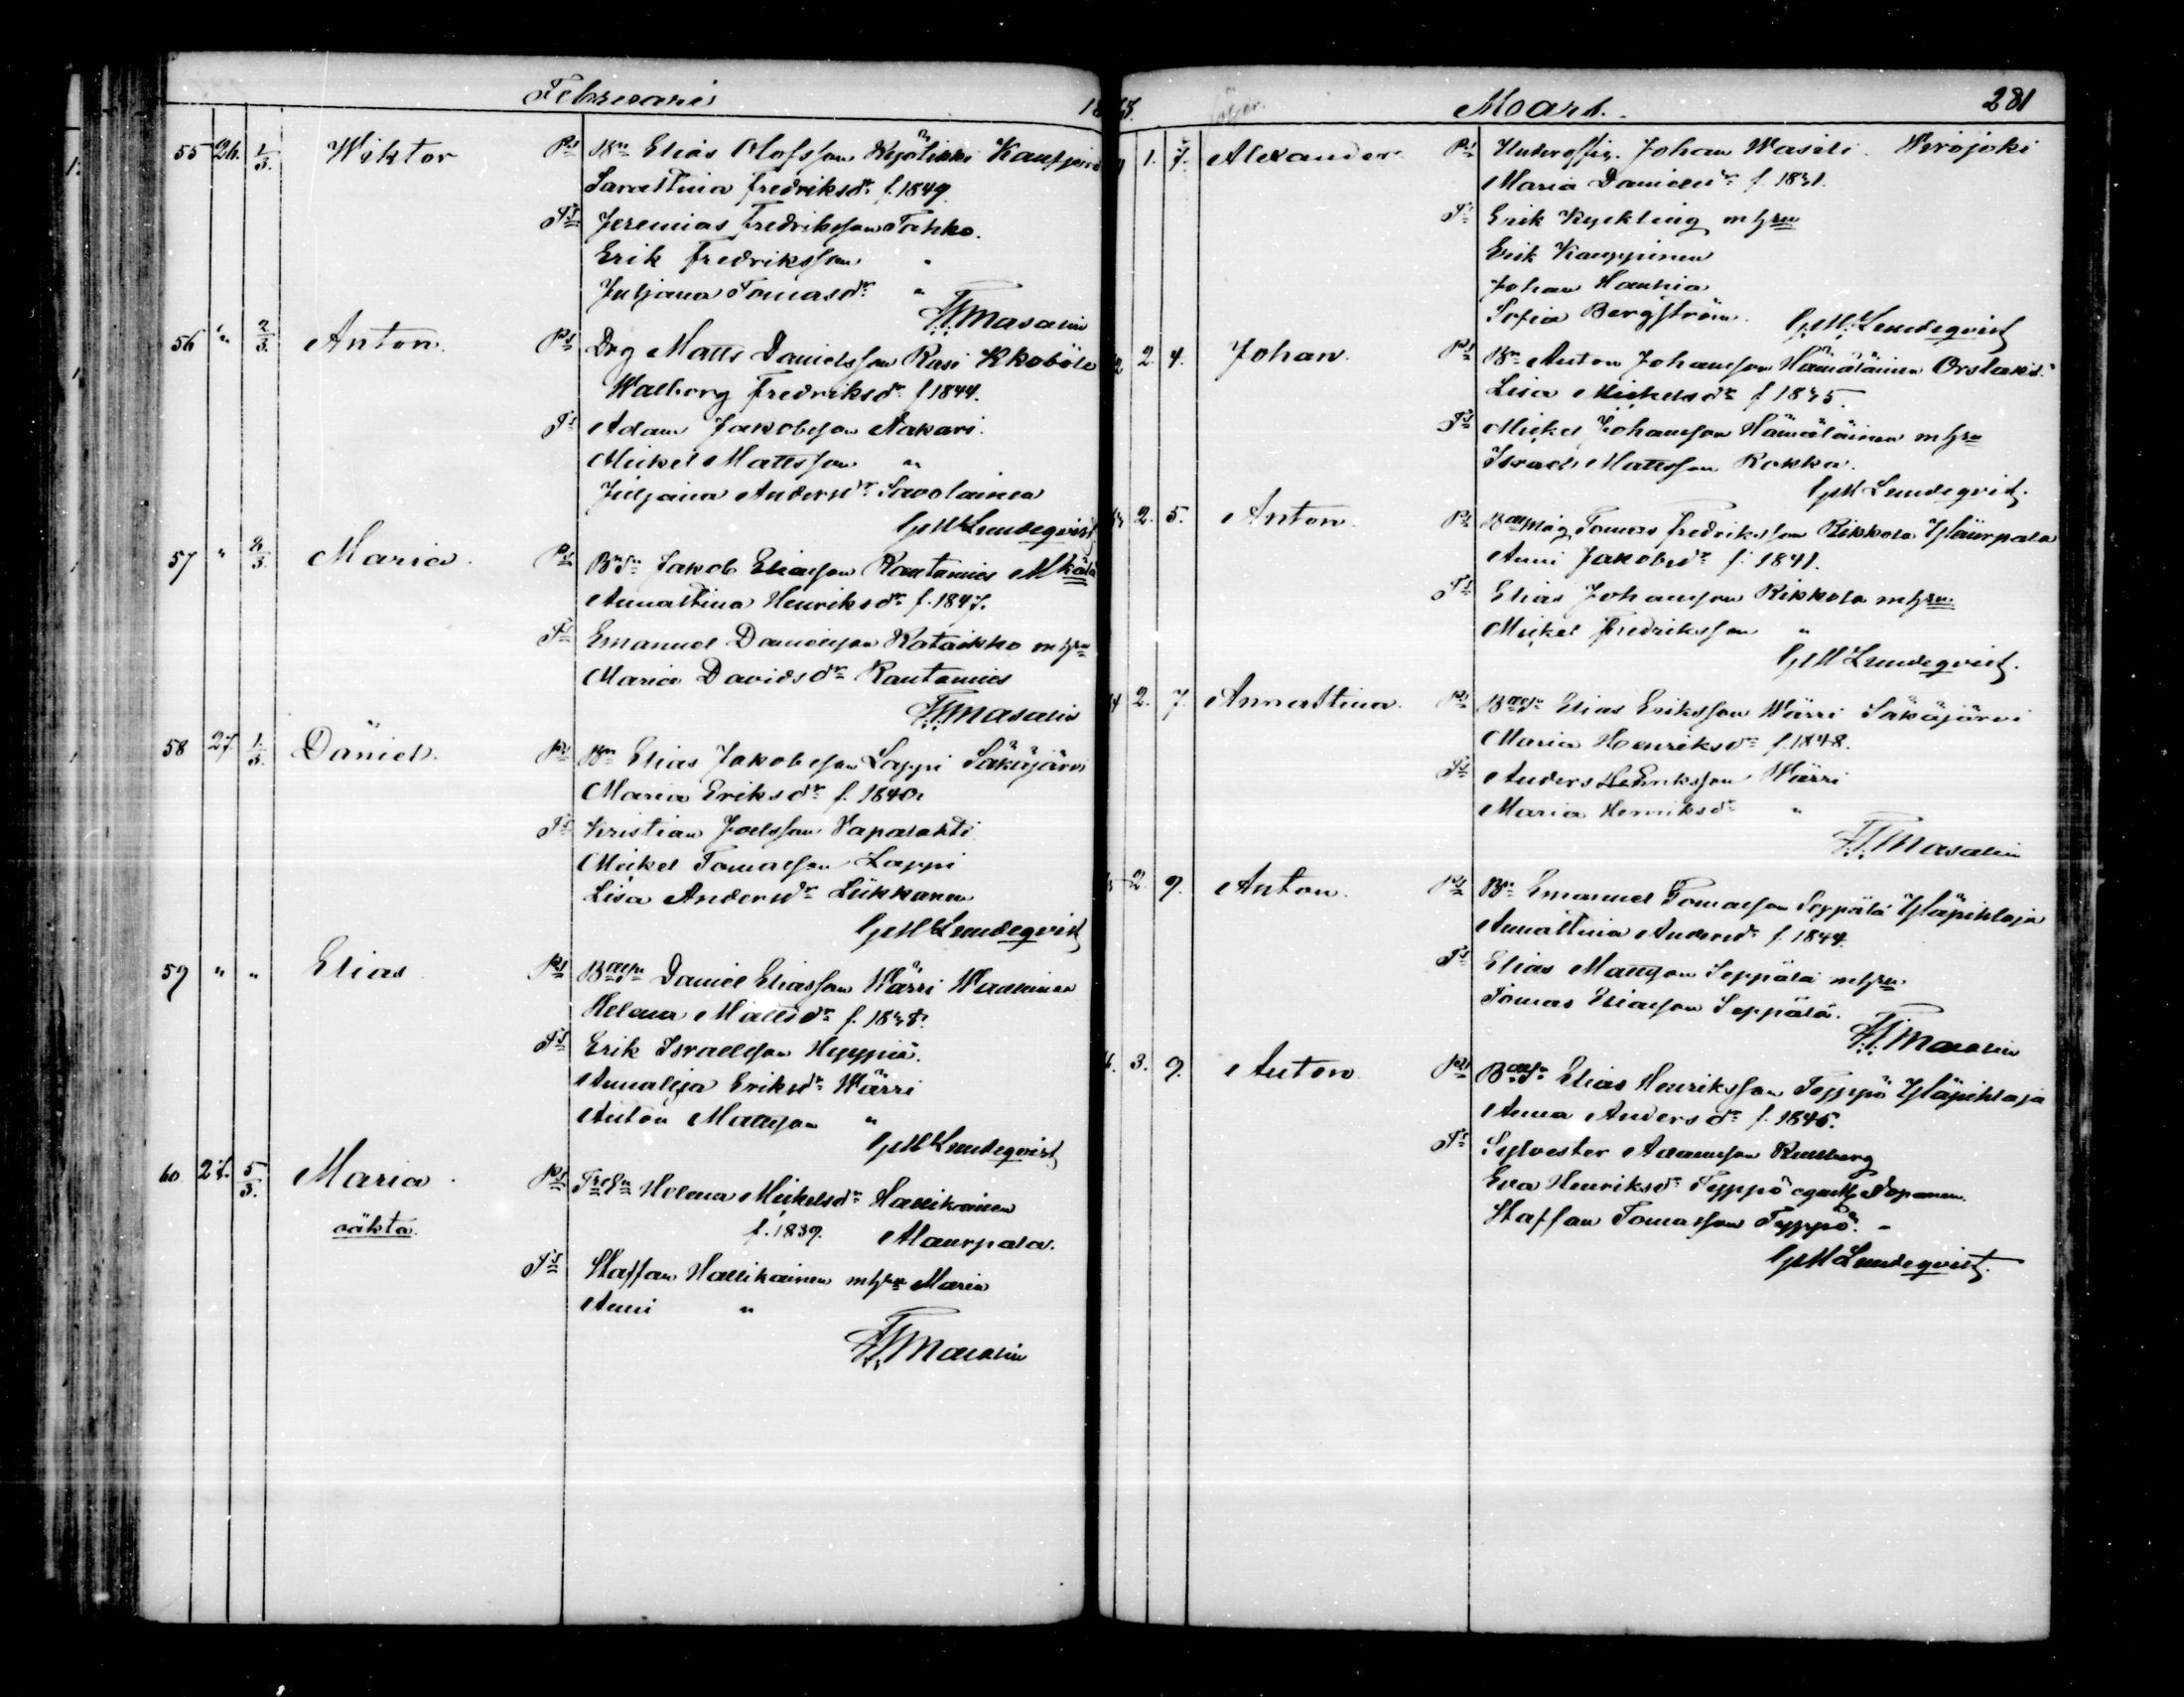 Februari 18
55 26. 1/3. Wiktor Prs Bn Elias Olofsson Kauppi
Sarastina Fredriksdr f. 1849.
Ts Jeremias Fredriksson Tahko.
Erik Fredriksson "
Juljana Tomasdr "
Masalin
56 " 2/3. Anton. Prs Drg Matts Danielsson Rasi Kkoböle
Walborg Fredriksdr f 1844.
Ts Adam Jakobsson Nakari.
Mickel Mattsson "
Juljana Andersdr Savolainen
GMLundeqvist
57 " 2/3. Maria. Prs Jakob Eliasson Rautamies
Annastina Henriksdr f. 1847.
Ts Emanuel Danielsson Kataikko m hru
Maria Davidsdr Rautamies
Masalin
58 27. 1/3. Daniel. Prs Bn Elias Jakobsson Lappi Säkäjärvi
Maria Eriksdr f. 1840.
Ts Kristian Joelsson Vapalahti
Mickel Tomasson Lappi
Lisa Andersdr Liikkanen
GMLundeqvist
59 " " Elias Prs Daniel Eliasson Wärri
Helena Mattsdr
Ts Erik Israelsson Hyppiä.
Annaliisa Eriksdr Wärri
Anton Mattsson "
GMLundeqvist
60. 27. 5/3. Maria. Prs Helena Mickelsdr Hallikainen
oäkta. f. 1839. Alaurpala.
Ts Staffan Hallikainen m hru Maria
Anni "
Masalin
Mars. 281
1. Alexander. Prs Underoffic. Johan Wasili. Wirojoki
Maria Danielsdr
Ts Erik Kyckling m hru
Erik Kauppinen
Johan Hanhia
Sofia Bergström.
GMLundeqvist
2. 4. Johan. Prs Bn Anton Johansson Hämäläinen Orslaks
Lisa Mickelsdr
Ts Mickel Johansson Hämäläinen m hru
Israel Mattsson Rokka.
GMLundeqvist.
2. 5. Anton. Prs Tomas Fredriksson Rikkola Yläurpala
Anni Jakobsdr f. 1841.
Ts Elias Johansson Rikkola m hru
Mickel Fredriksson "
GMLundeqvist.
2. 7. Annastina. Prs Elias Eriksson Wärri Säkäjärvi
Maria Henriksdr f. 1848.
Ts Anders Eriksson Wärri
Maria Henriksdr "
Masalin
2. 9. Anton. Prs Bn Emanuel Tomasson Seppälä Yläpihlaja
Annastina Andersdr f. 1844.
Ts Elias Mattsson Seppälä m hru
Tomas Eliasson Seppälä.
Masalin
3. 9. Anton Prs Elias Henriksson Teppo Yläpihlaja
Anna Andersdr f. 1845.
Ts Sylvester Adamsson Renberg
Eva Henriksdr Teppo
Staffan Tomasson Teppo. -
GMLundeqvist.